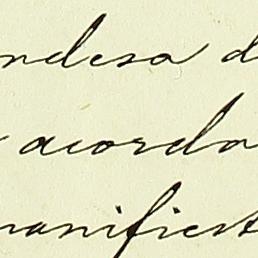 ndesa d
acorda
manifiest